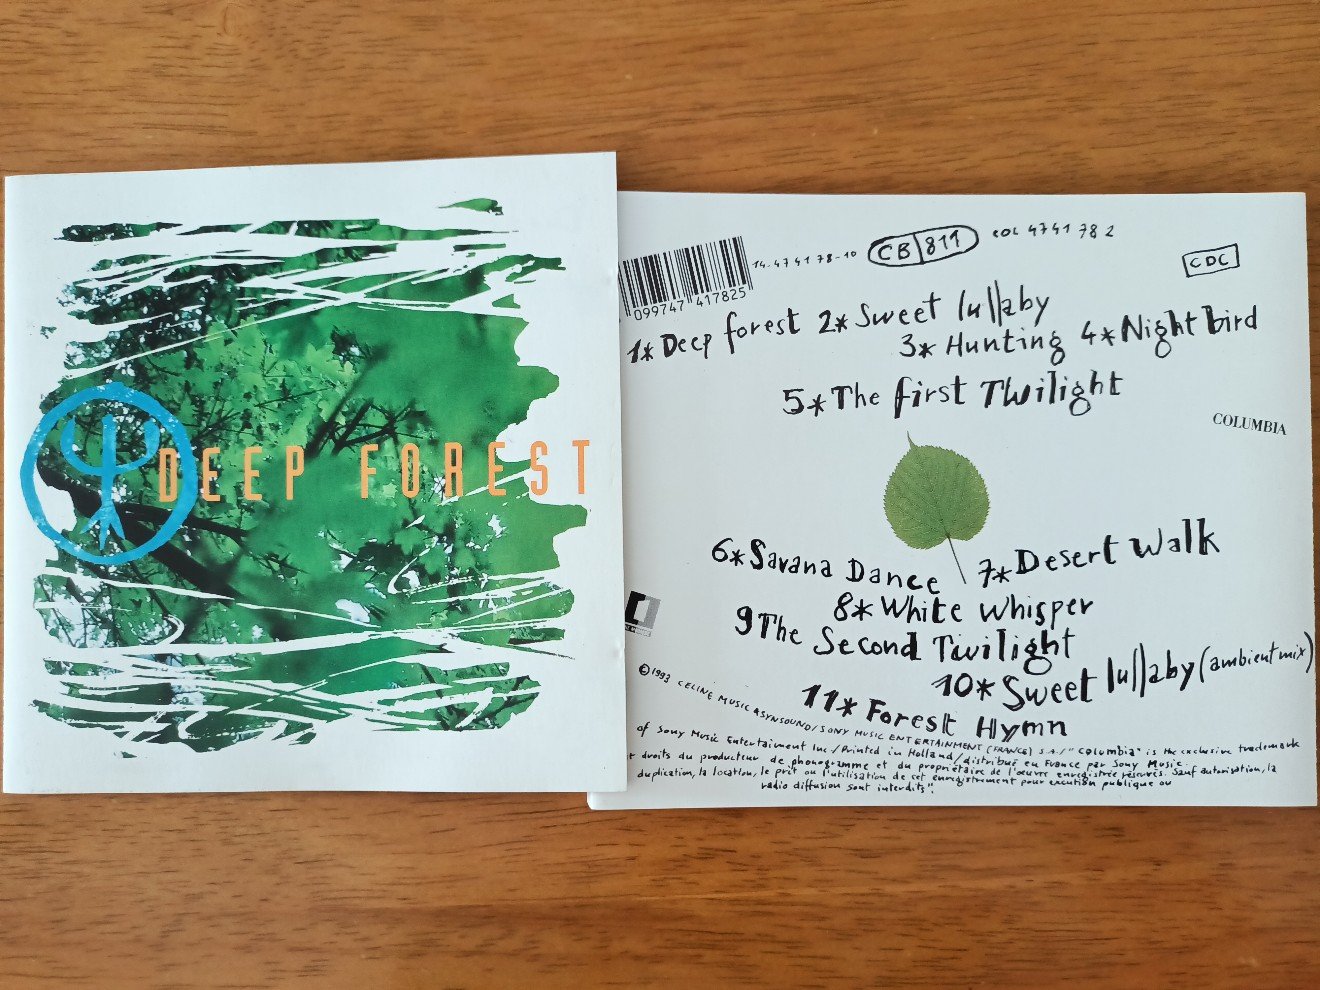 DEEP FOREST
099747 417825
14.4741 78-10
CB 811
COL 4741 78 2
CDC
1* Deep forest 2* Sweet lullaby
3* Hunting 4* Night bird
5* The first Twilight
COLUMBIA
6* Savana Dance 7* Desert Walk
8* White Whisper
9 The Second Twilight
10* Sweet lullaby (ambient mix)
11* Forest Hymn
1993 CELINE MUSIC & SYNSOUND / SONY MUSIC ENTERTAINMENT (FRANCE) S.A./"Columbia" is the exclusive trademark
of Sony Music Entertaiment Inc / Printed in Holland / distribué en France par Sony Music.
droits du producteur de phonogramme et du propriétaire de l'œuvre enregistrée réservés. Sauf autorisation, la
duplication, la location, le prêt ou l'utilisation de cet enregistrement pour exécution publique ou
radio diffusion sont interdits".